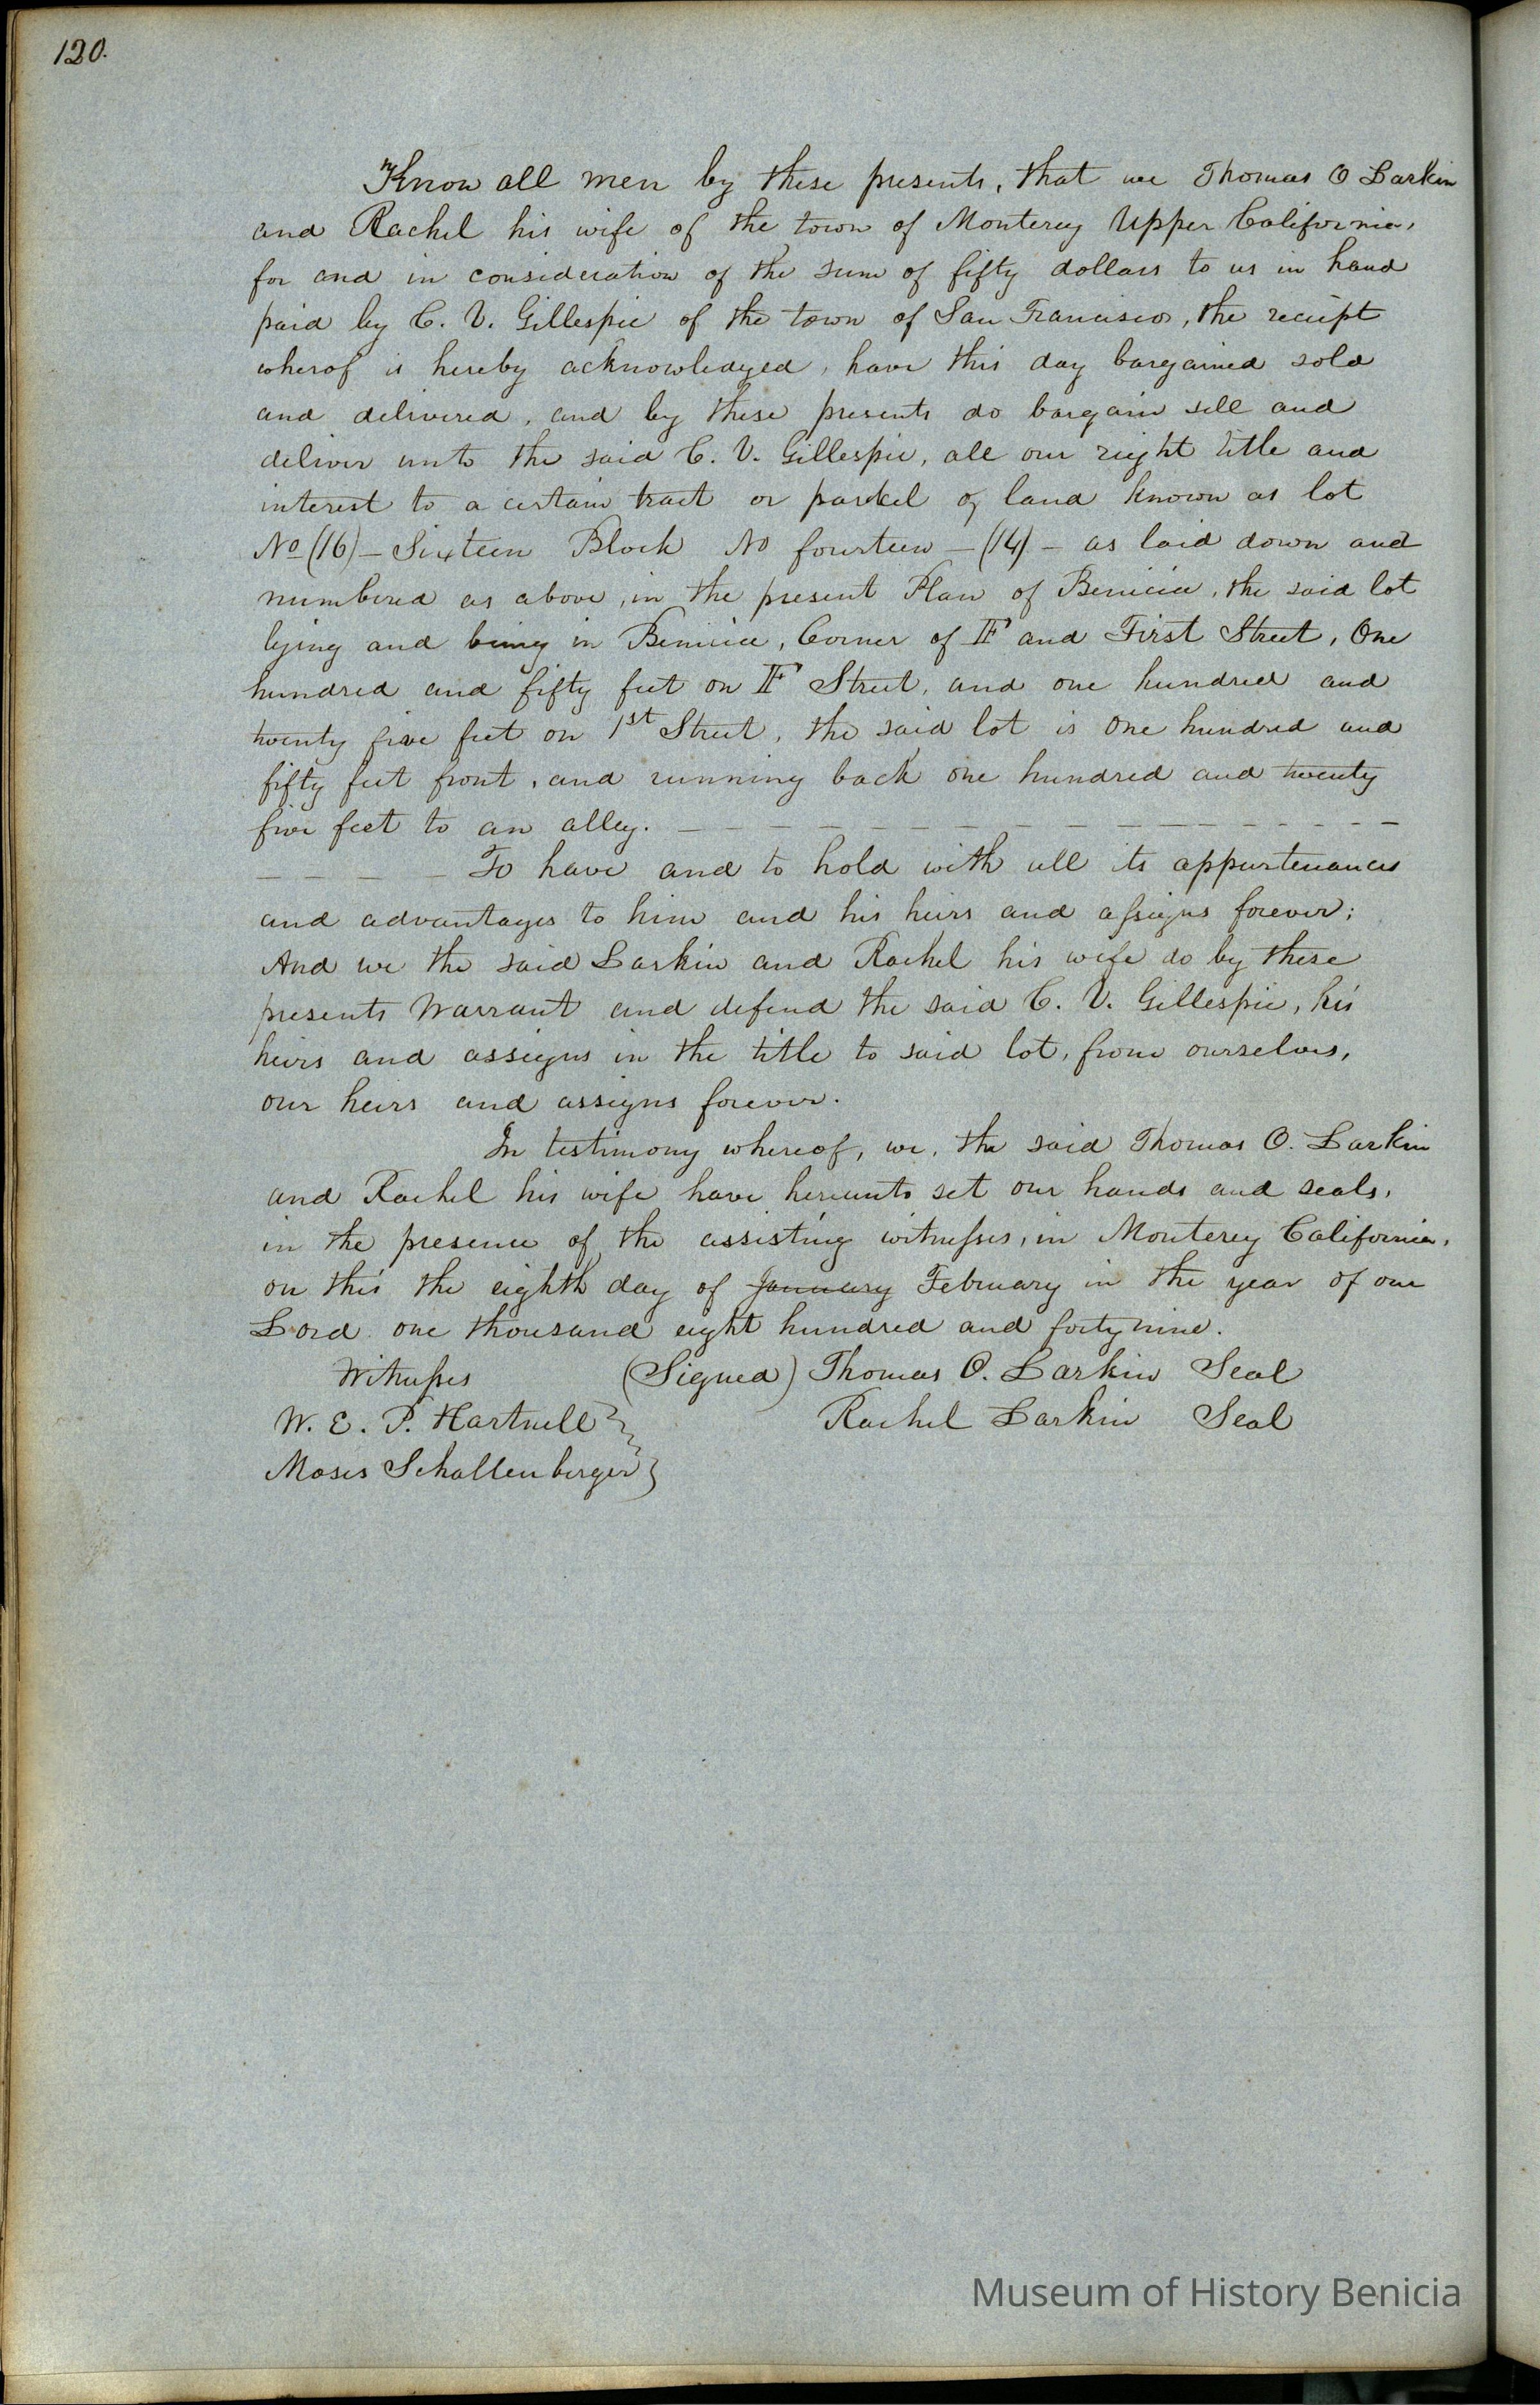 120.
Know all men by these presents, that we Thomas O Larkin
and Rachel his wife of the town of Monterey Upper California,
for and in consideration of the sum of fifty dollars to us in hand
paid by C. V. Gillespie of the town of San Francisco, the receipt
wherof is hereby acknowledged, have this day bargained sold
and delivered, and by these presents do bargain sell and
deliver unto the said C. V. Gillespie, all our right title and
interest to a certain tract or parcel of land known as lot
No (16) – Sixteen Block No fourteen – (14) – as laid down and
numbered as above, in the present Plan of Benicia, the said lot
lying and being in Benicia, Corner of F and First Street, One
hundred and fifty feet on F Street, and one hundred and
twenty five feet on 1st Street, the said lot is One hundred and
fifty feet front, and running back one hundred and twenty
five feet to an alley. – – – – – – – – – – – – – –
– – – – – To have and to hold with all its appurtenances
and advantages to him and his heirs and assigns forever;
And we the said Larkin and Rachel his wife do by these
presents Warrant and defend the said C. V. Gillespie, his
heirs and assigns in the title to said lot, from ourselves,
our heirs and assigns forever.
In testimony whereof, we, the said Thomas O. Larkin
and Rachel his wife have hereunto set our hands and seals,
in the presence of the assisting witnesses, in Monterey California,
on this the eighth day of January February in the year of our
Lord one thousand eight hundred and forty nine.
Witnesses (Signed) Thomas O. Larkin Seal
W. E. P. Hartnell } Rachel Larkin Seal
Moses Schallenberger }
Museum of History Benicia